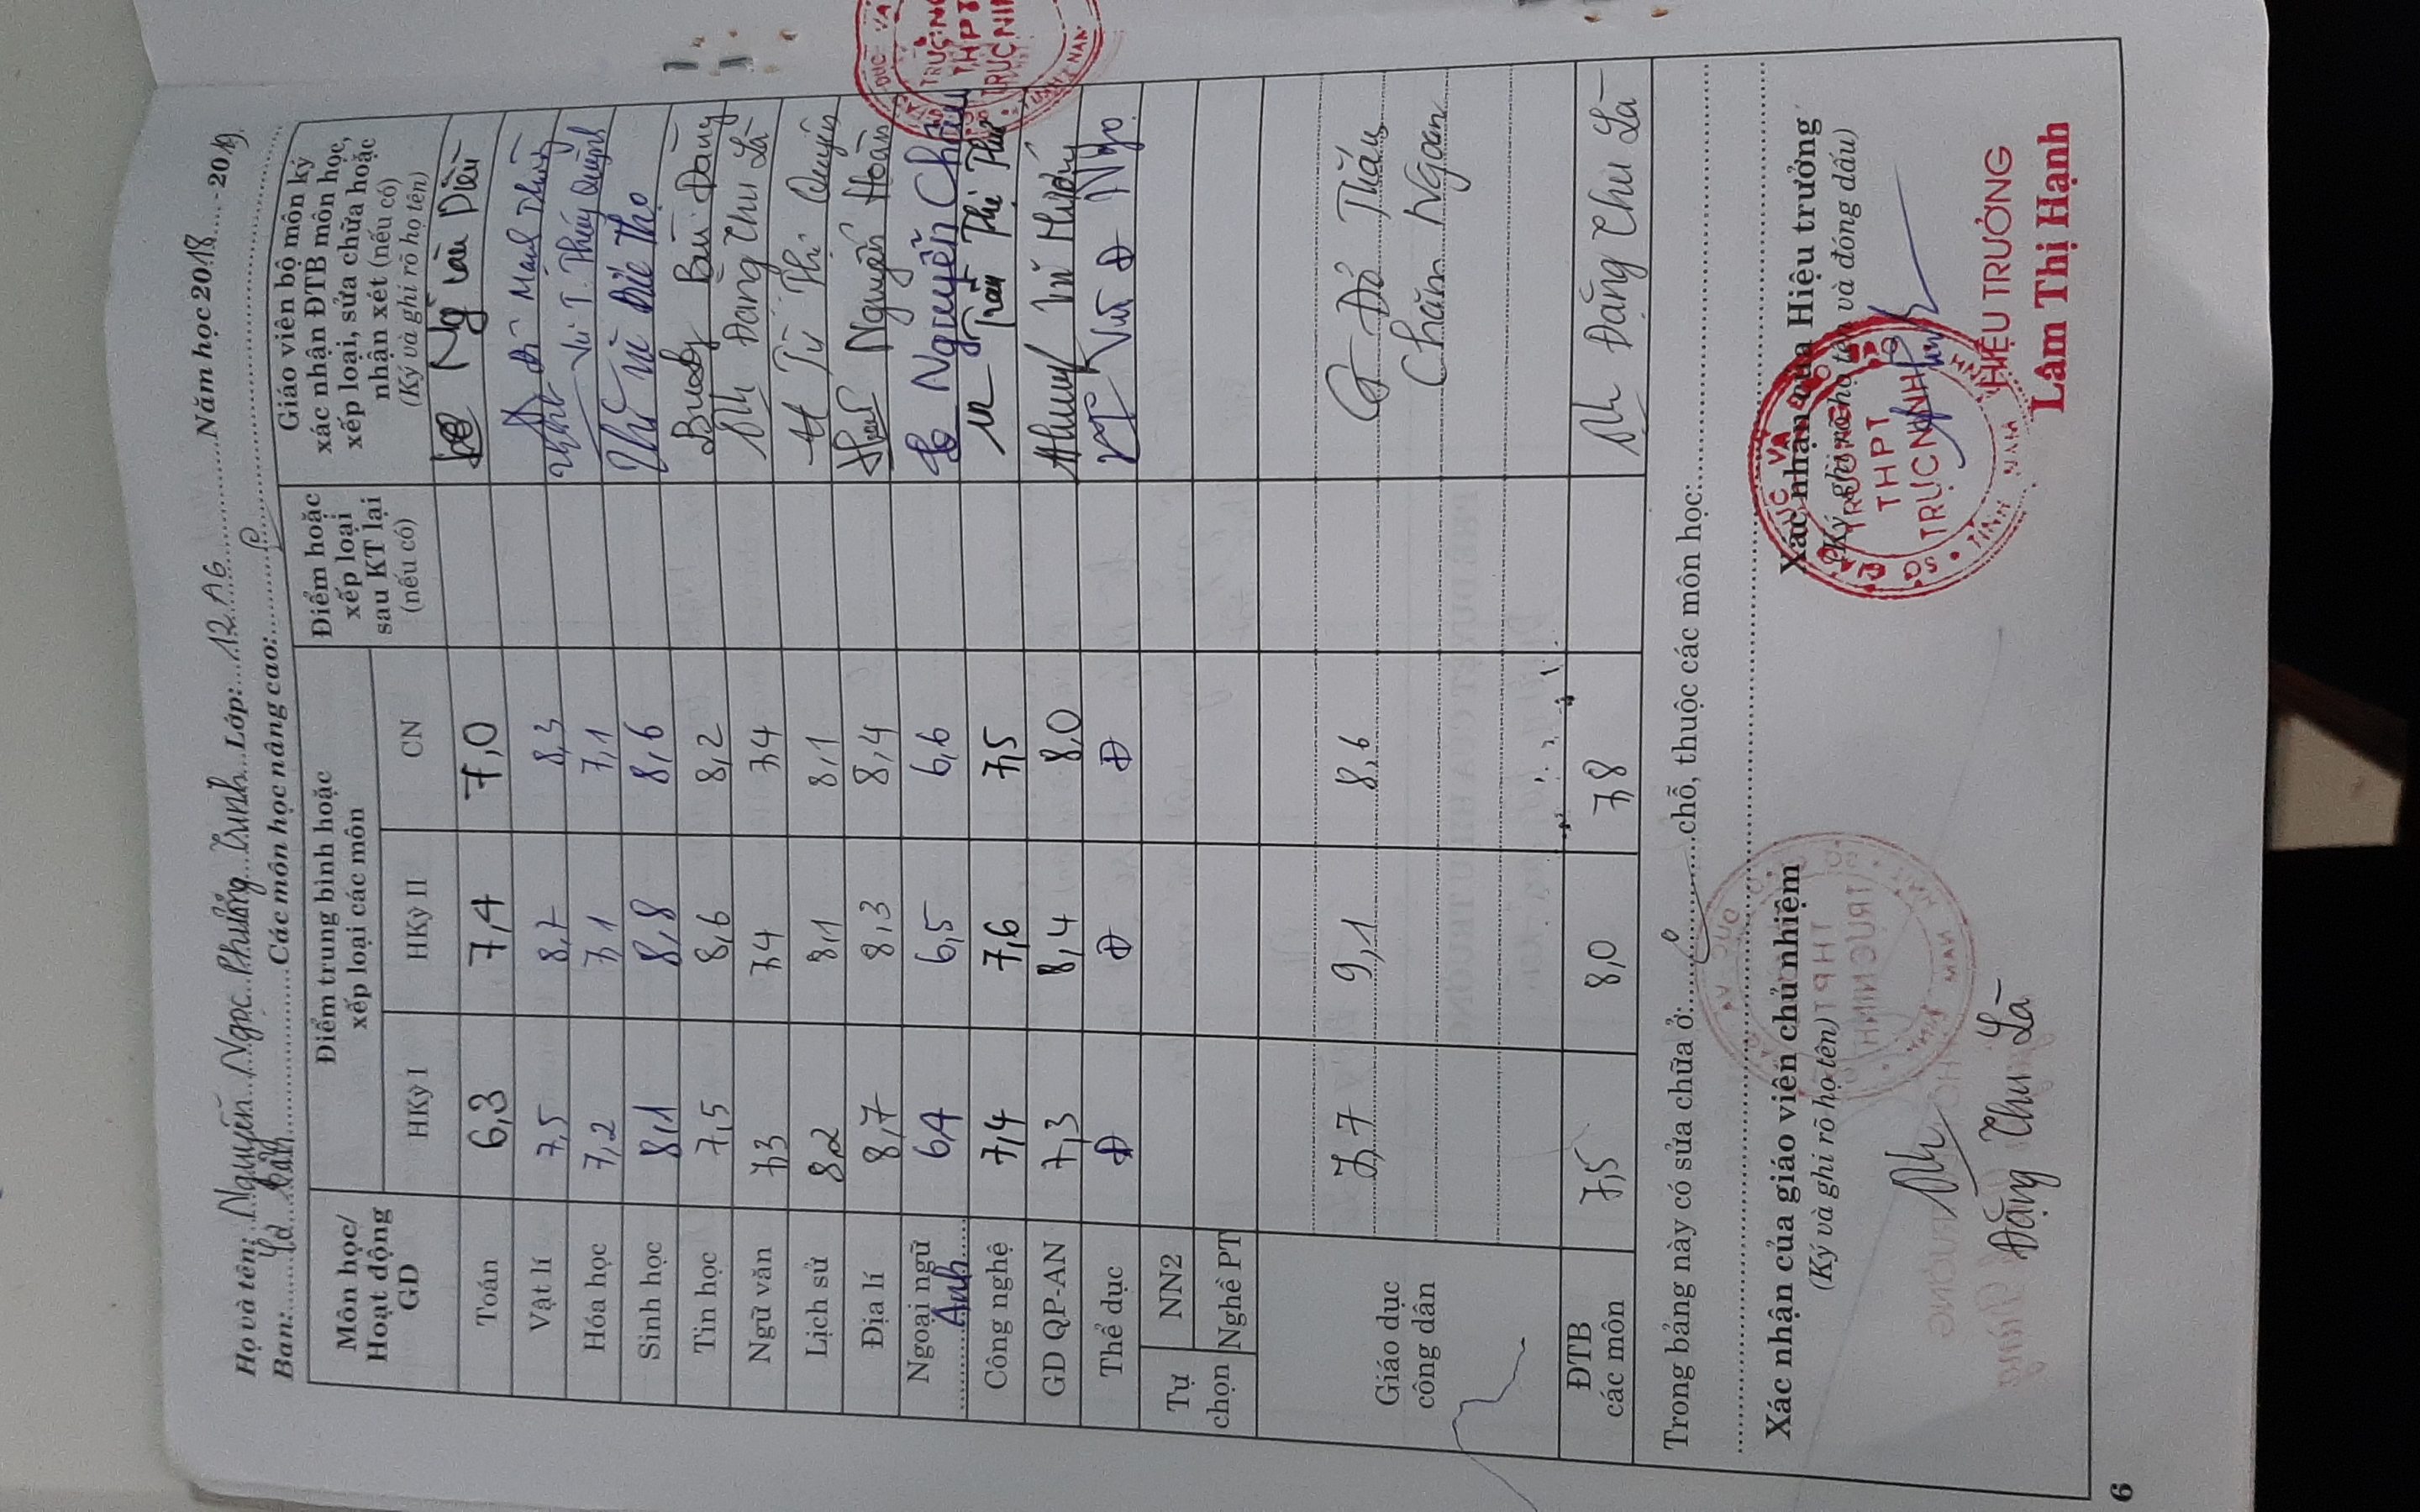 Họ và tên: Nguyễn Ngọc Phương Trinh Lớp: 12 A6 Năm học 2018 - 2019
Ban: Các môn học nâng cao:
Môn học/ Hoạt động GD
Điểm trung bình hoặc xếp loại các môn
Điểm hoặc xếp loại sau KT lại (nếu có)
Giáo viên bộ môn ký xác nhận ĐTB môn học, xếp loại, sửa chữa hoặc nhận xét (nếu có)
(Ký và ghi rõ họ tên)
HKỳ I HKỳ II CN
Toán 6,3 7,4 7,0
Vật lí 7,5 8,7 8,3
Hóa học 7,2 7,1 7,1 Vũ T. Thúy Quỳnh
Sinh học 8,1 8,8 8,6
Tin học 7,5 8,6 8,2
Ngữ văn 7,3 7,4 7,4 Đặng Thu Là
Lịch sử 8,2 8,1 8,1 Thị Quyên
Địa lí 8,7 8,3 8,4 Nguyễn Hoàn
Ngoại ngữ Anh 6,4 6,5 6,6 Nguyễn Châu
Công nghệ 7,4 7,6 7,5 Trần Thị
GD QP-AN 7,3 8,4 8,0
Thể dục Đ Đ Đ
Tự chọn NN2
Nghề PT
Giáo dục công dân 7,7 9,1 8,6 Đỗ Thẩm
Chăm ngoan
ĐTB các môn 7,5 8,0 7,8 Đặng Thu Là
Trong bảng này có sửa chữa ở: 0 chỗ, thuộc các môn học:
Xác nhận của giáo viên chủ nhiệm
(Ký và ghi rõ họ tên)
Đặng Thu Là
Xác nhận của Hiệu trưởng
(Ký, ghi rõ họ tên và đóng dấu)
TRƯỜNG
THPT
TRỰC NINH
HIỆU TRƯỞNG
Lâm Thị Hạnh
6